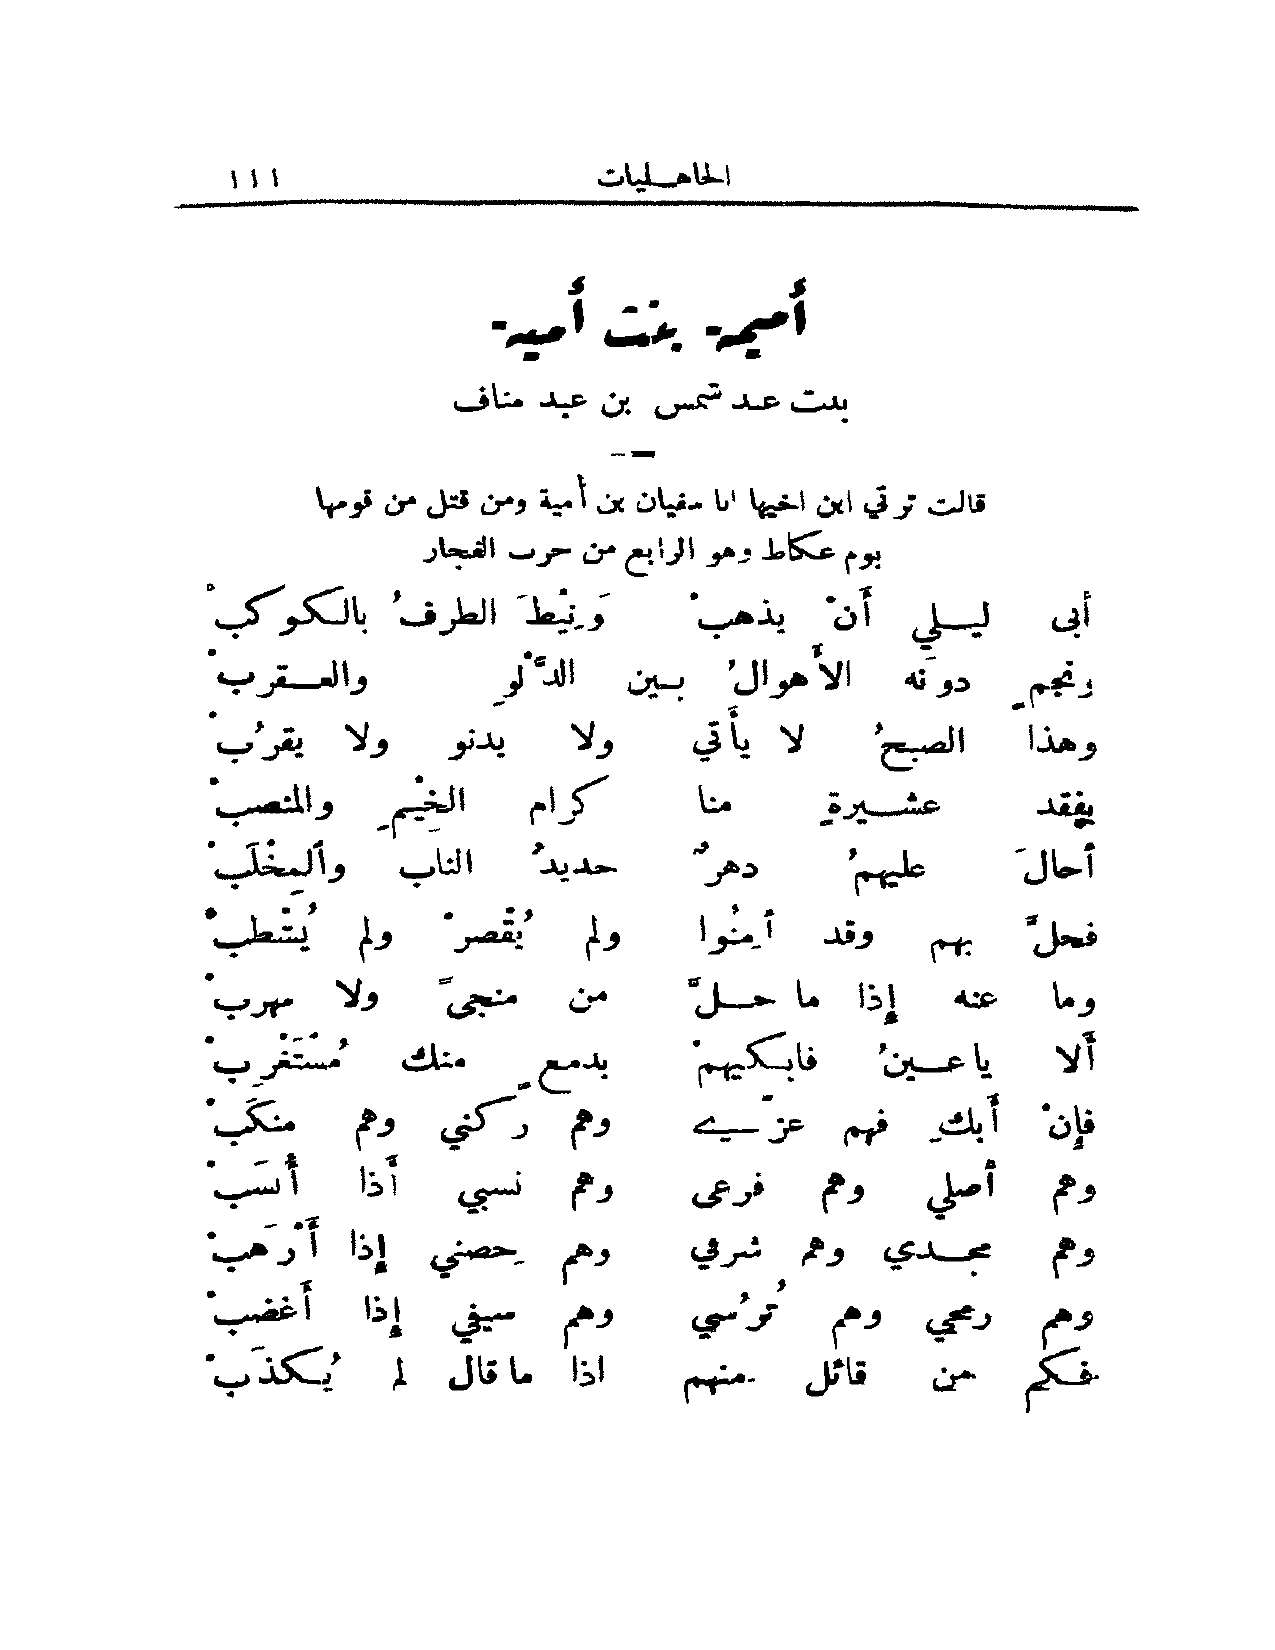 الجاهـليات ١١١
أميمة بنت أمية
بنت عبد شمس بن عبد مناف
قالت ترثي ابن اخيها ابا سفيان بن أمية ومن قتل من قومها
يوم عكاظ وهو الرابع من حرب الفجار
أبى ليـلي أَنْ يذهبْ وَنِيْطَ الطرفُ بالكوكبْ
ونجمٍ دونَه الأَهوالُ بـين الدَّلْوِ والعـقربْ
وهذا الصبحُ لا يأَتي ولا يدنو ولا يقرُبْ
بِفقد عشـيرةٍ منا كرام الخِيْمِ والمنصبْ
أحالَ عليهمُ دهرٌ حديدُ الناب والمِخْلَبْ
فحلَّ بهم وقد أمِنُوا ولم يُقْصرْ ولم يُشْطبْ
وما عنه إِذا ما حـلَّ من منجىً ولا مهربْ
أَلا ياعـينُ فابـكيهمْ بدمعٍ منك مُسْتَغْرِبْ
فإِنْ أَبكِ فهم عزّي وهم ركني وهم منكَبْ
وهم أَصلي وهم فرعى وهم نسبي أَذا أُنسَبْ
وهم مجـدي وهم شرفي وهم حِصني إِذا أَرْهَبْ
وهم رمحي وهم تُرُسي وهم سيفي إِذا أَغضبْ
فـكم من قائل منهم اذا ما قال لم يُـكذَبْ